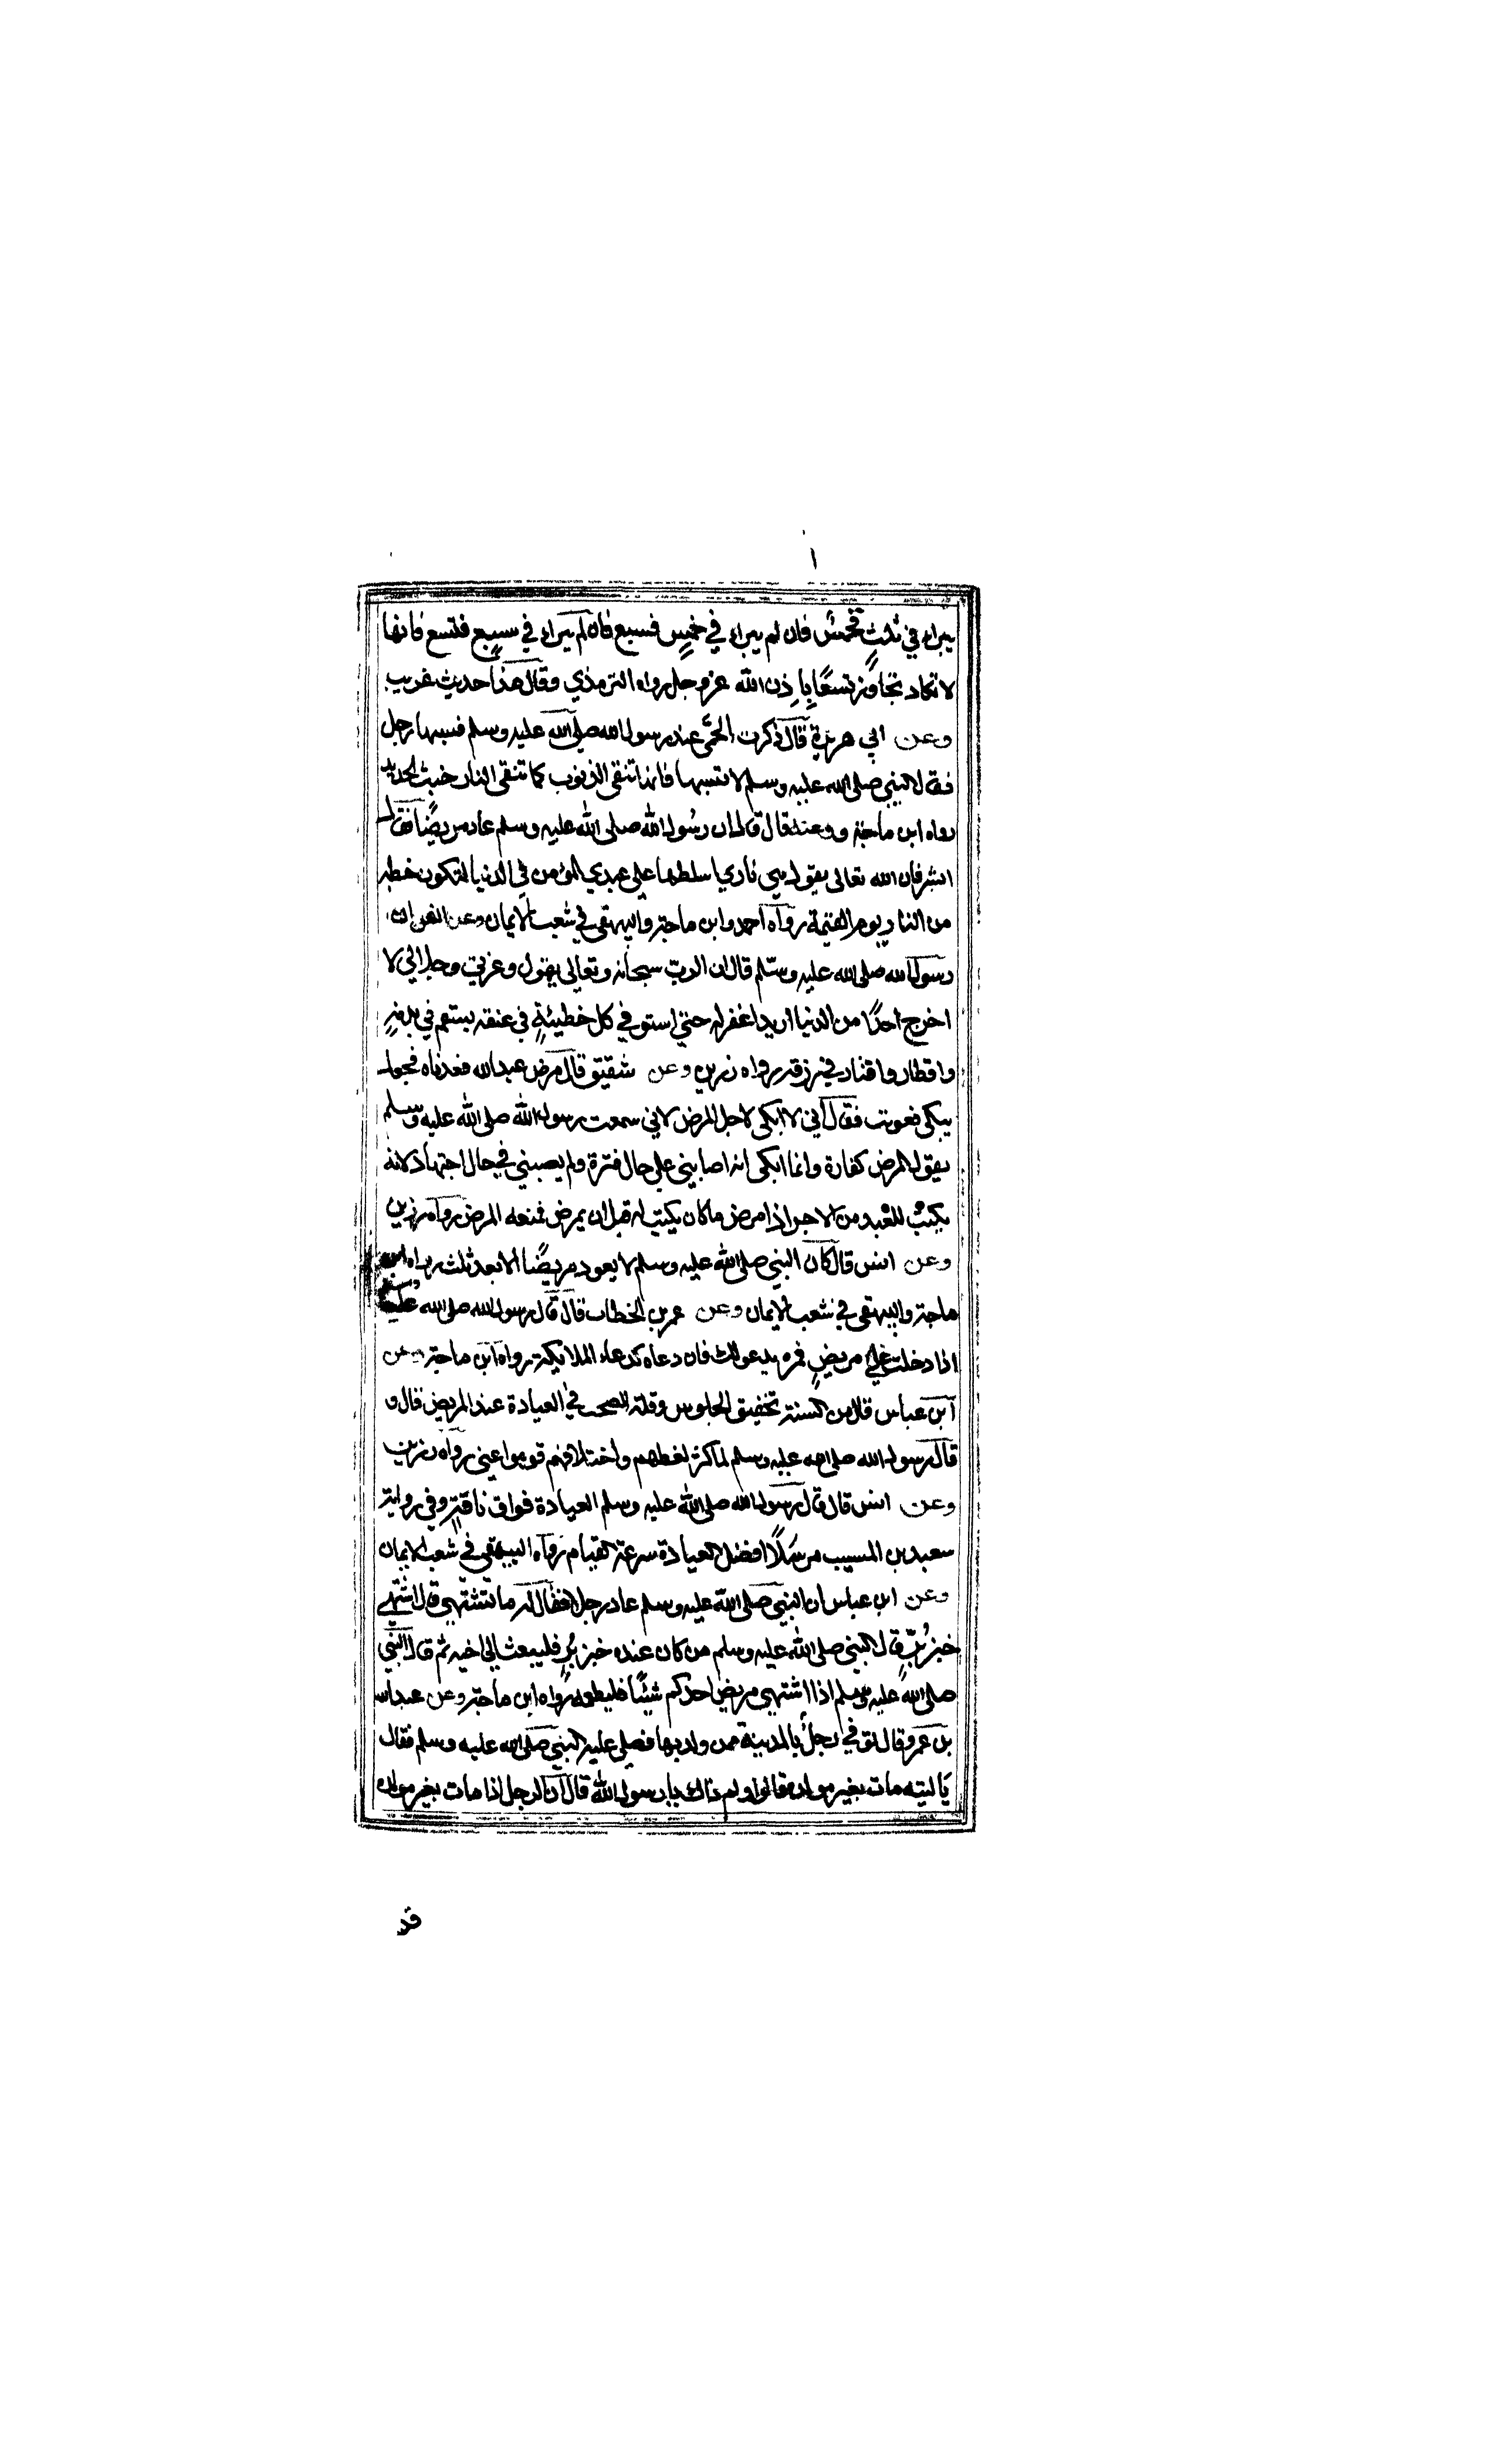 يبراء في ثلث فخمس فان لم يبراء في خمس فسبع فان لم يبراء في سبع فتسع فانها
لا تكاد تجاوز تسعًا بإذن الله عز وجل رواه الترمذي وقال هذا حديث غريب
وعن ابي هريرة قال ذكرت الحمى عند رسول الله صلى الله عليه وسلم فسبها رجل
فقال النبي صلى الله عليه وسلم لا تسبها فانها تنقي الذنوب كما تنقي النار خبث الحديد
رواه ابن ماجة وعنه قال قال ان رسول الله صلى الله عليه وسلم عاد مريضًا فقال
ابشر فان الله تعالى يقول هي ناري اسلطها على عبدي المؤمن في الدنيا لتكون حظه
من النار يوم القيمة رواه احمد وابن ماجة والبيهقي في شعب الايمان وعن انس ان
رسول الله صلى الله عليه وسلم قال ان الرب سبحانه وتعالى يقول وعزتي وجلالي لا
اخرج احدًا من الدنيا اريد اغفر له حتى استوفي كل خطيئةٍ في عنقه بسقم في بدنهٍ
واقطار واقتار في رزقه رواه رزين وعن شقيق قال مرض عبد الله فعدناه فجعل
يبكي فعوتب فقال اني لا ابكي لاجل المرض لاني سمعت رسول الله صلى الله عليه وسلم
يقول المرض كفارة وانما ابكي انه اصابني على حال فترة ولم يصبني في حال اجتهاد لانه
يكتب للعبد من الاجر اذا مرض ما كان يكتب له قبل ان يمرض فمنعه المرض رواه رزين
وعن انس قال كان النبي صلى الله عليه وسلم لا يعود مريضًا الا بعد ثلث رواه ابن
ماجة والبيهقي في شعب الايمان وعن عمر بن الخطاب قال قال رسول الله صلى الله عليه وسلم
اذا دخلت على مريضٍ فمره يدعو لك فان دعاه كدعاء الملائكة رواه ابن ماجة وعن
ابن عباس قال من السنة تخفيف الجلوس وقلة الصخب في العيادة عند المريض قال و
قال رسول الله صلى الله عليه وسلم لما كثر لغطهم واختلافهم قوموا عني رواه رزين
وعن انس قال قال رسول الله صلى الله عليه وسلم العيادة فواق ناقةٍ وفي رواية
سعيد بن المسيب مرسلًا افضل العيادة سرعة القيام رواه البيهقي في شعب الايمان
وعن ابن عباس ان النبي صلى الله عليه وسلم عاد رجلا فقال له ما تشتهي قال اشتهي
خبز بُرٍّ قال النبي صلى الله عليه وسلم من كان عنده خبز بُرٍّ فليبعث الى اخيه ثم قال النبي
صلى الله عليه وسلم اذا اشتهى مريض احدكم شيئًا فليطعمه رواه ابن ماجة وعن عبد الله
بن عمرو قال توفي رجل بالمدينة ممن ولد بها فصلى عليه النبي صلى الله عليه وسلم فقال
يا ليته مات بغير مولده قالوا ولم ذاك يا رسول الله قال ان الرجل اذا مات بغير مولده